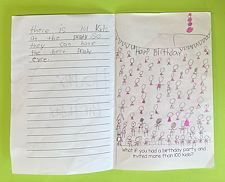 there is 101 Kids
at the party so
they can have
the best party
ever.
Happy Birthday
What if you had a birthday party and
invited more than 100 kids?